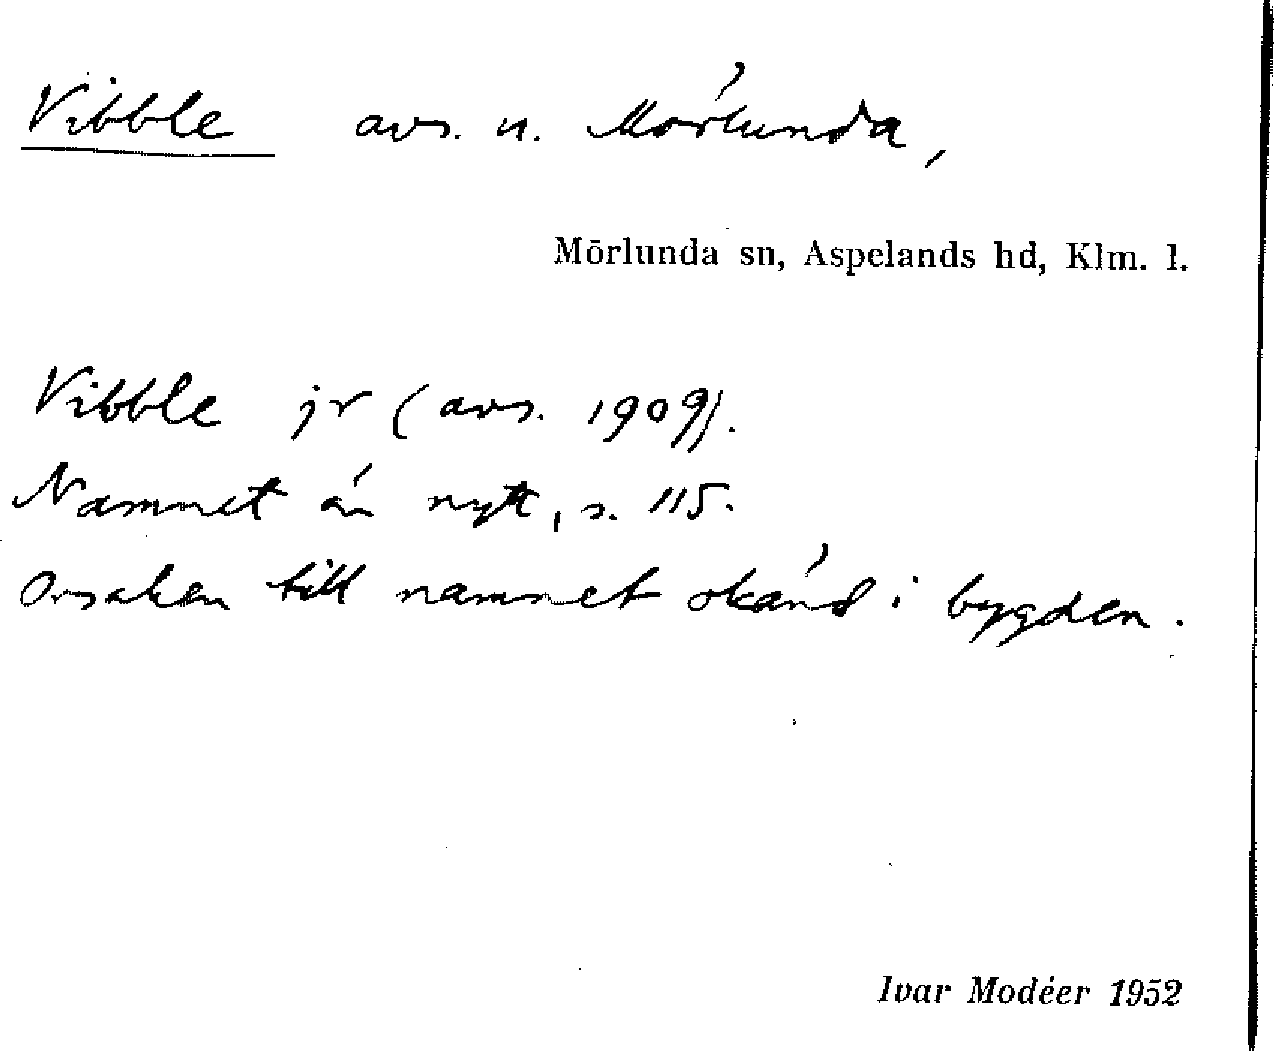 Vibble avs. u. Mörlunda,
Mörlunda sn, Aspelands hd, Klm. l.
Vibble jr (avs. 1909).
Namnet är nytt, s. 115.
Orsaken till namnet okänd i bygden.
Ivar Modéer 1952